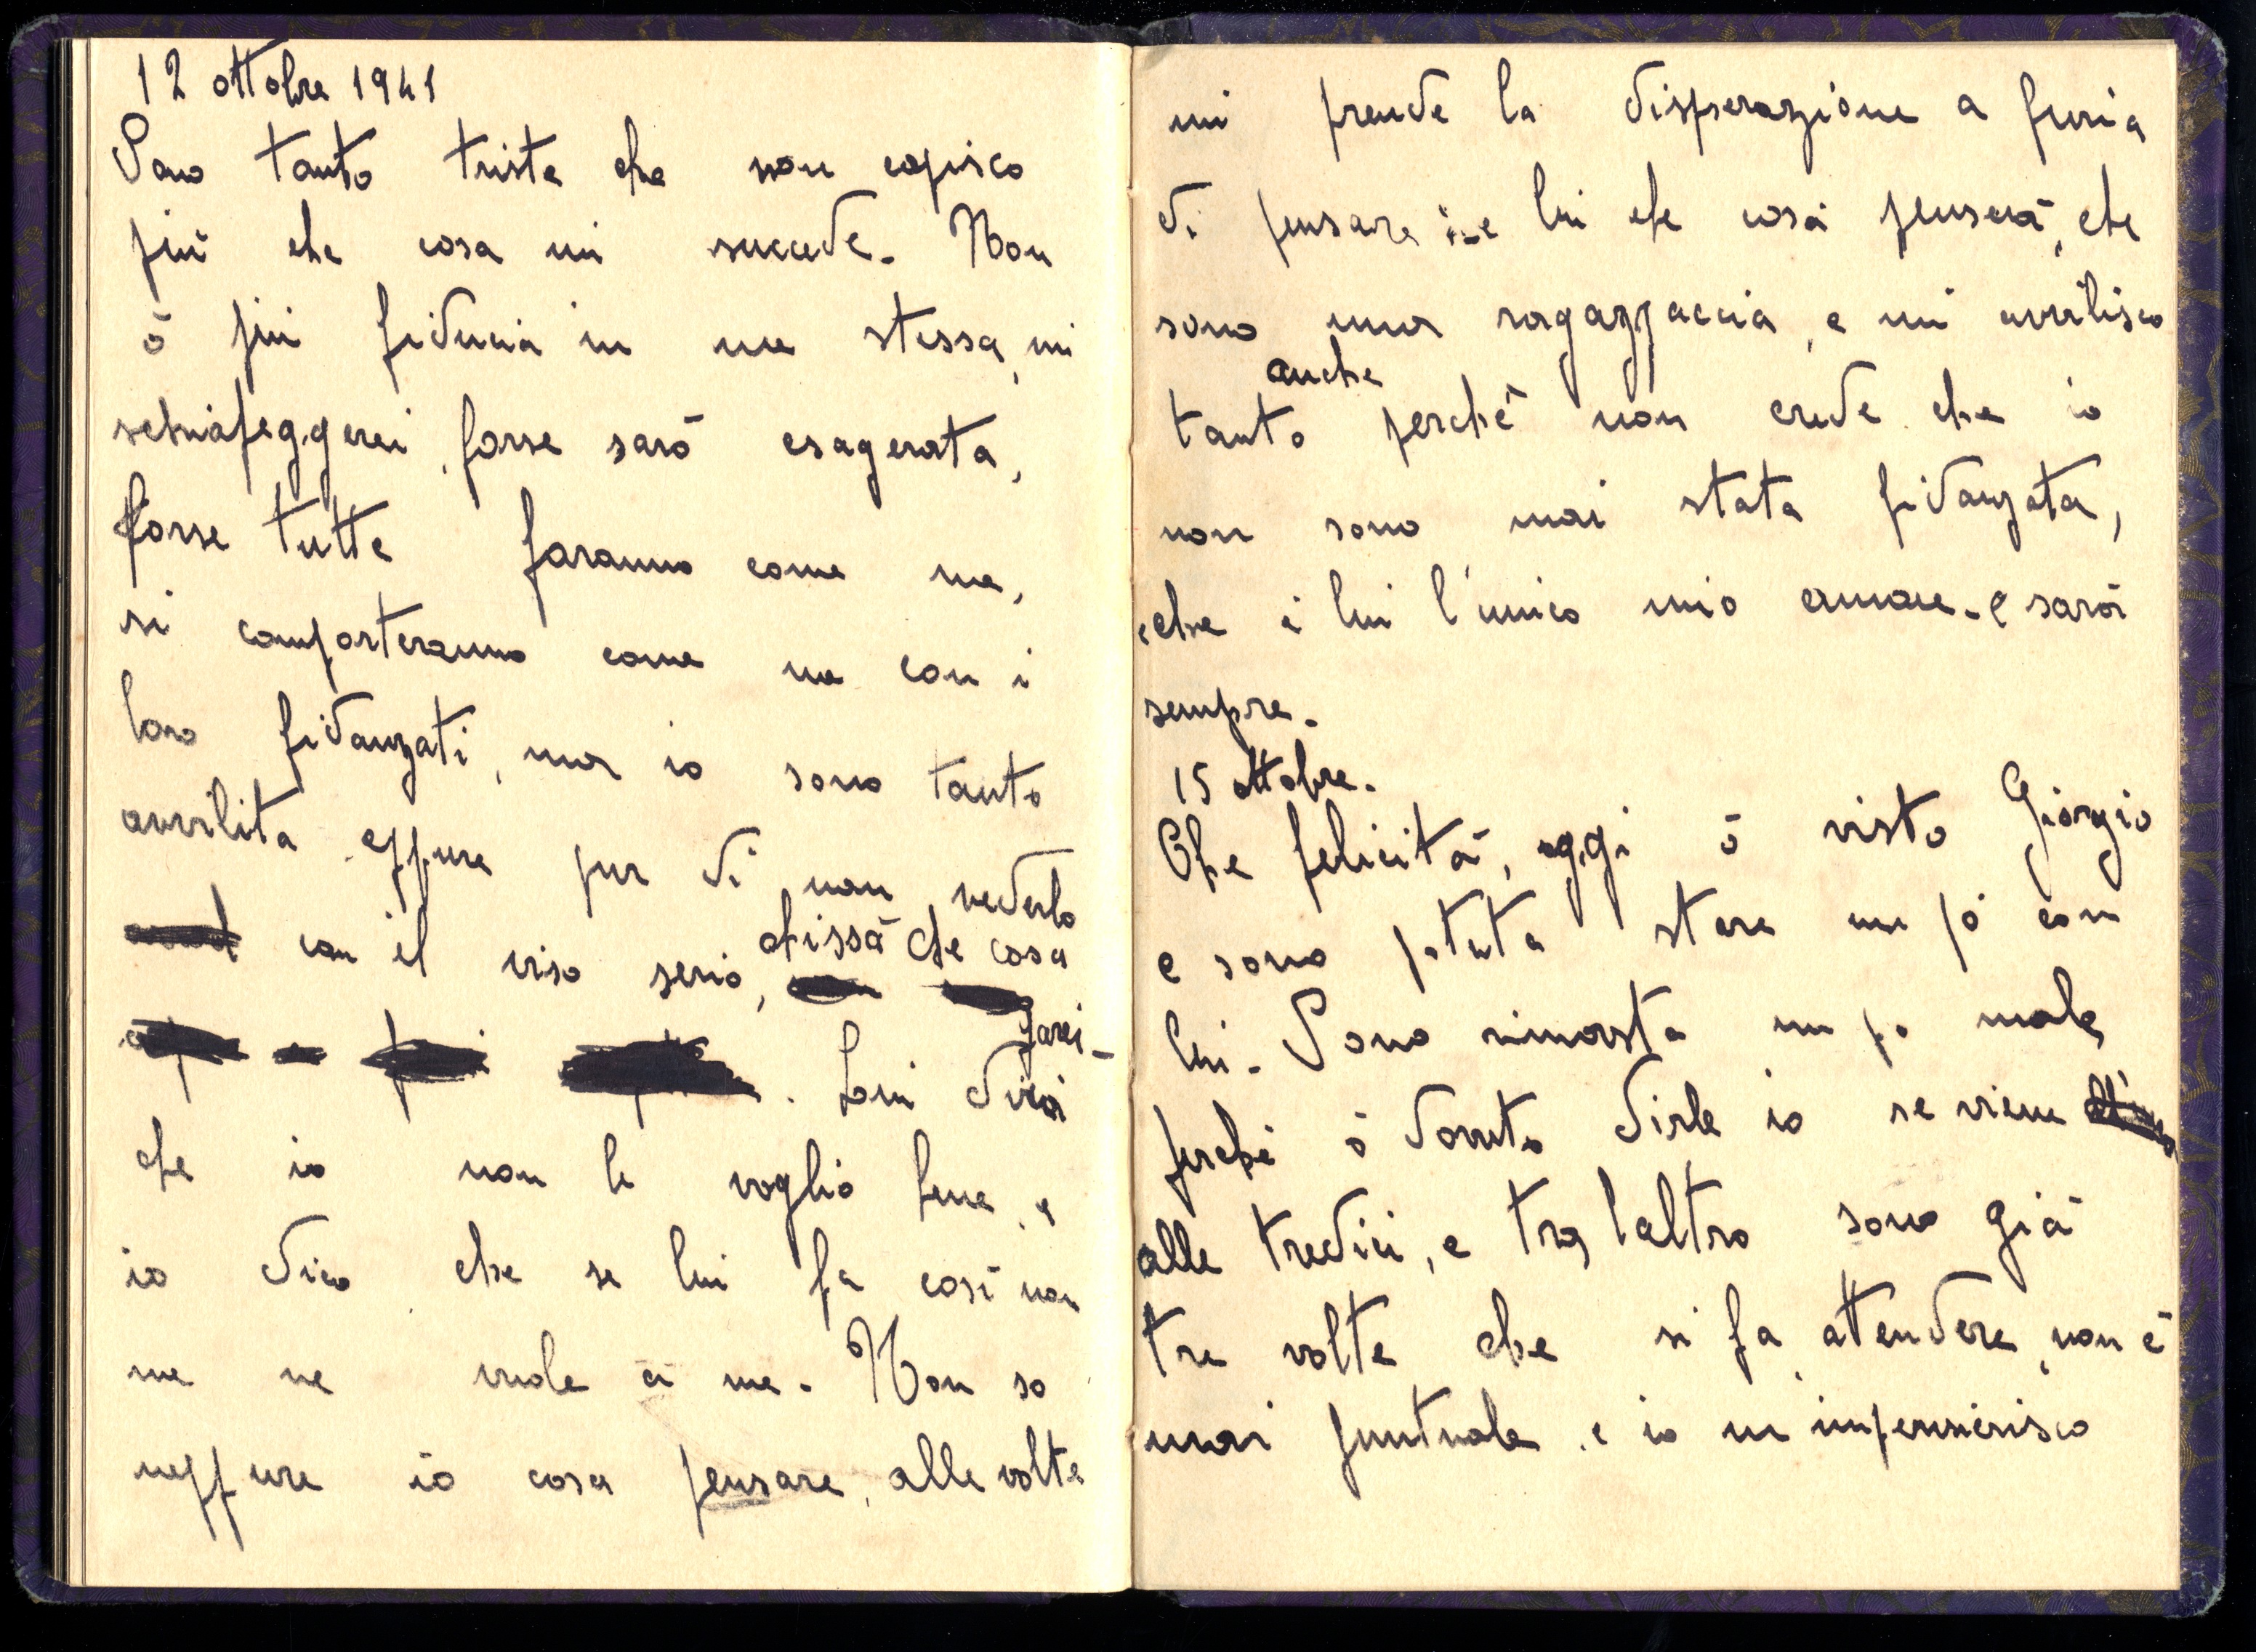 12 ottobre 1941
Sono tanto triste che non capisco
più che cosa mi succede. Non
ò più fiducia in me stessa, mi
schiafeggerei, forse sarò esagerata,
forse tutte faranno come me,
si comporteranno come me con i
loro fidanzati, ma io sono tanto
avvilita eppure pur di non vederlo
con il viso serio, chissà che cosa
farei.
Lui dirà
che io non le voglio bene, e
io dico che se lui fa così non
me ne vuole a me. Non so
neppure io cosa pensare, alle volte
mi prende la disperazione a furia
di pensare e lui che cosa penserà, che
sono una ragazzaccia, e mi avvilisco
anche
tanto perché non crede che io
non sono mai stata fidanzata,
che è lui l'unico mio amore. e sarà
sempre.
15 ottobre.
Che felicità, oggi ò visto Giorgio
e sono potuta stare un pò con
lui. Sono rimasta un po male
perché ò dovuto dirle io se viene
alle tredici, e tra l'altro sono già
tre volte che si fa attendere, non è
mai puntuale e io m impensierisco